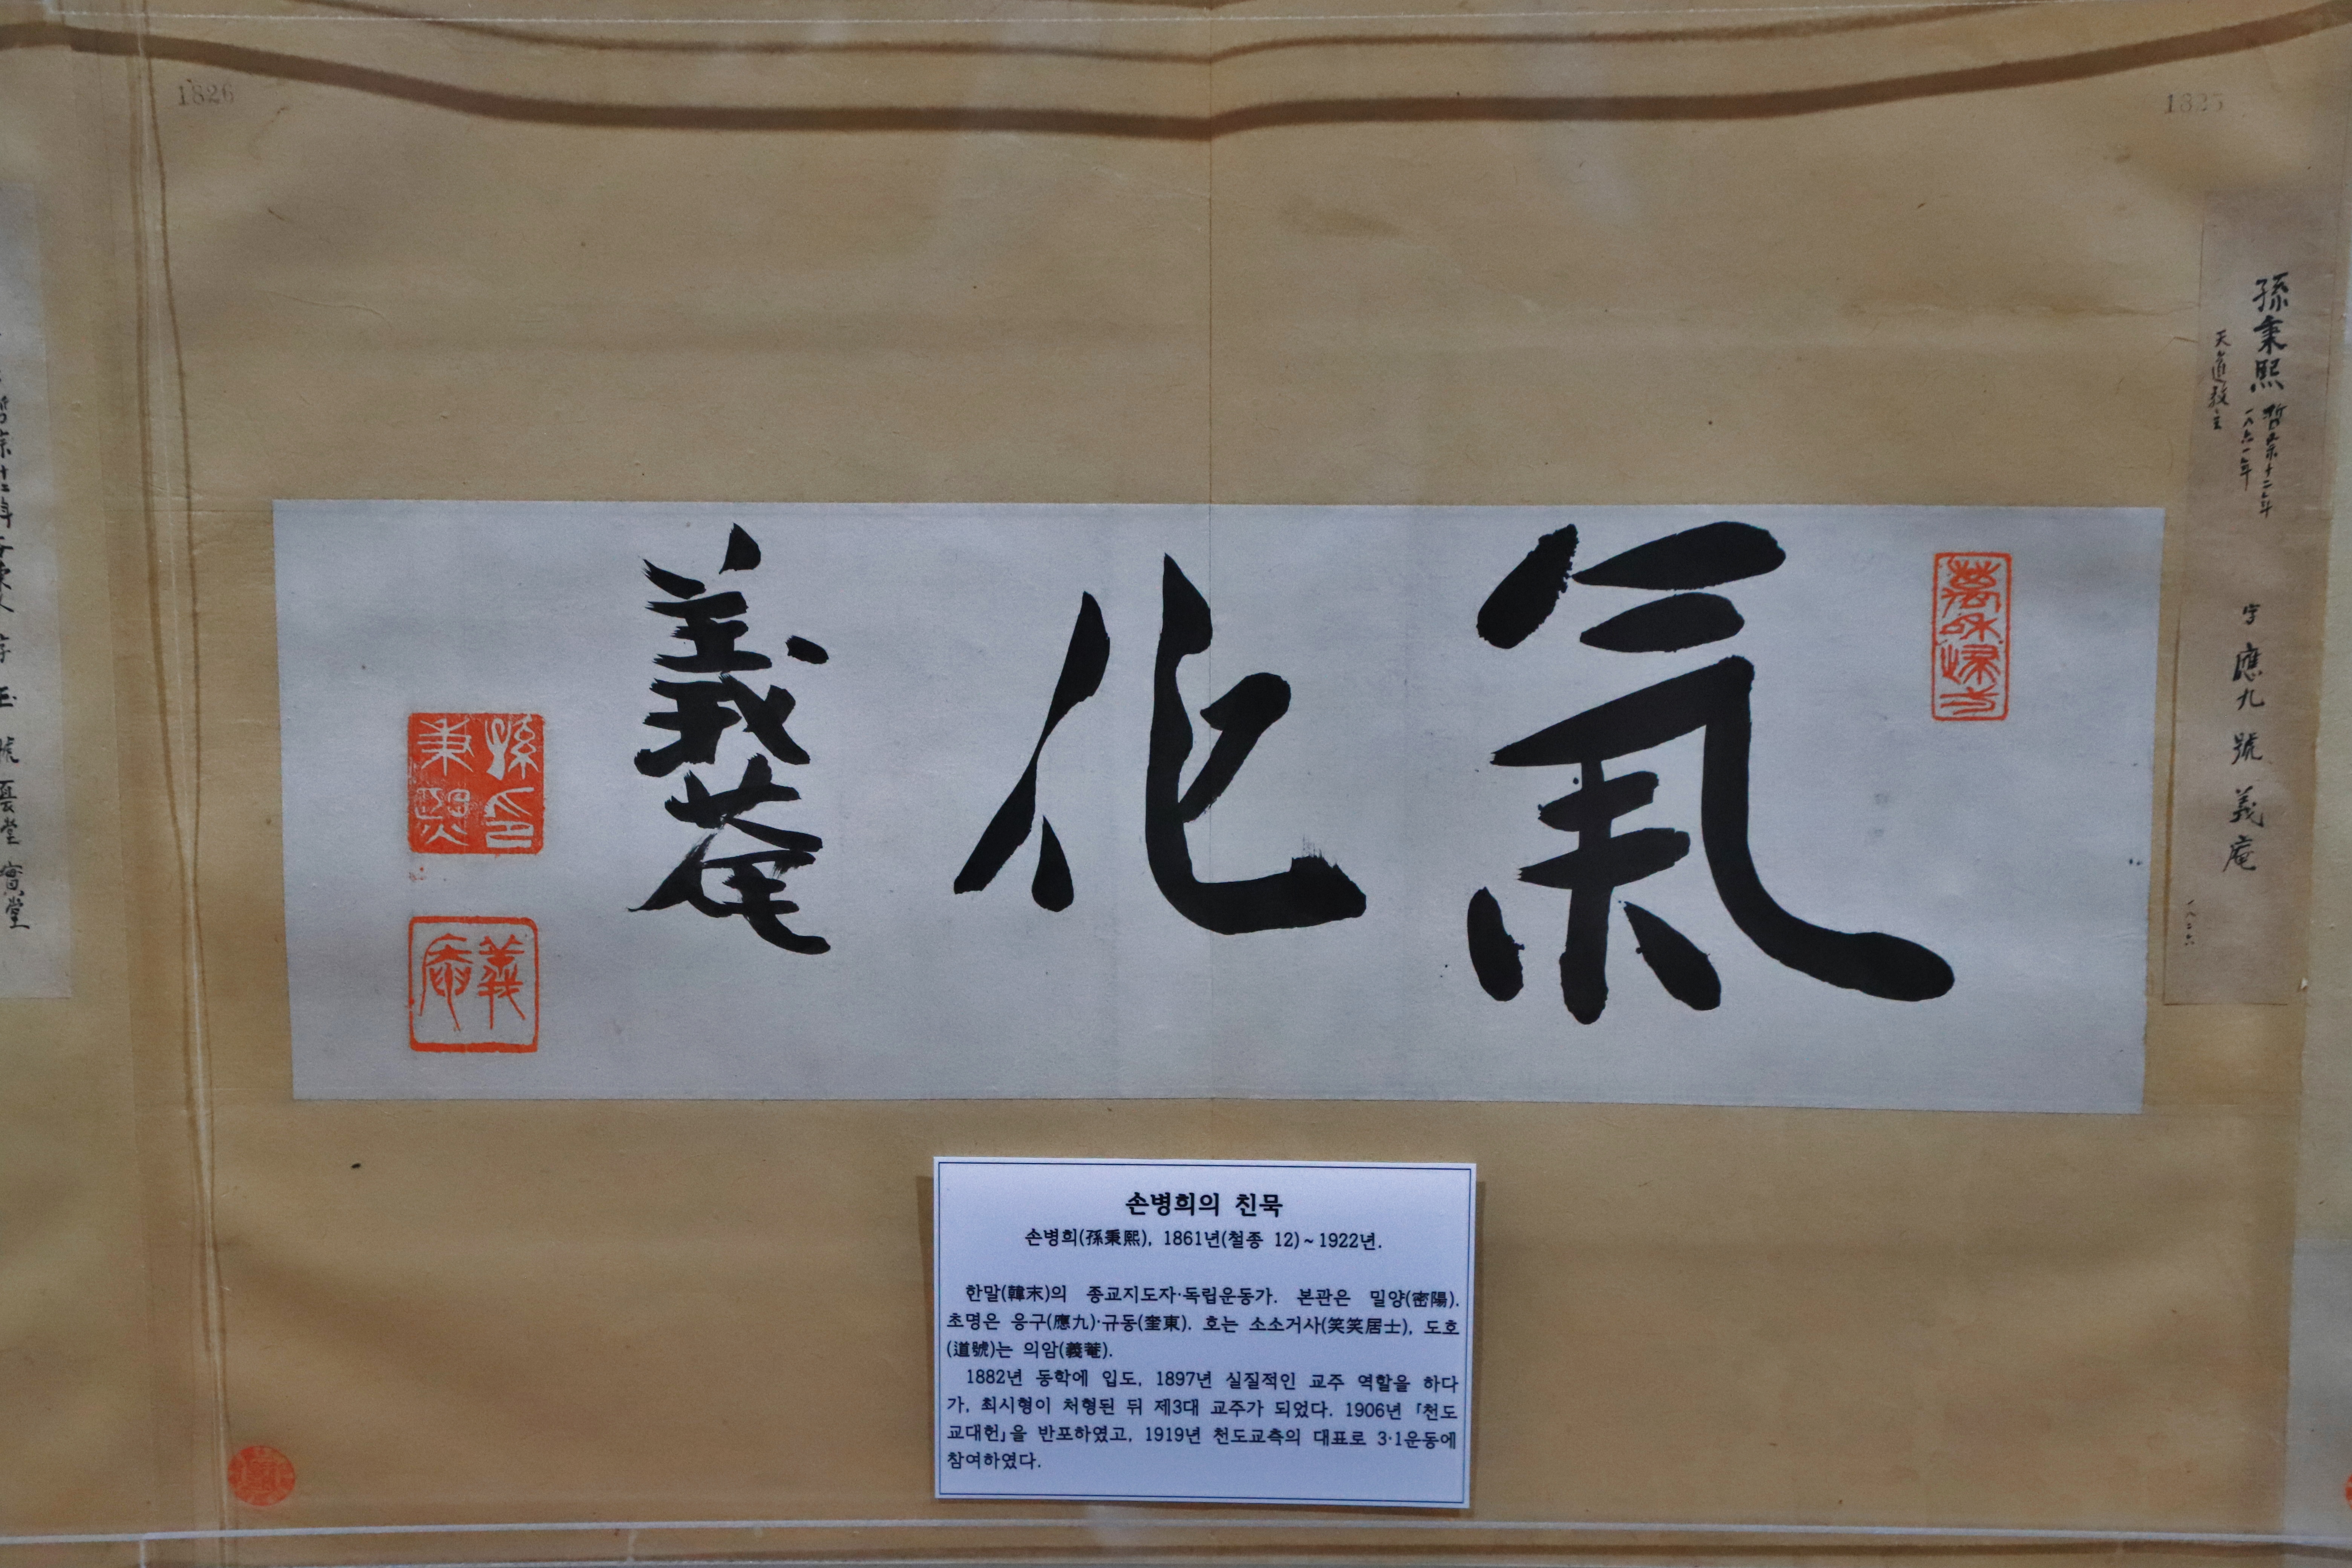 1826
1825
孫秉熙
哲宗十二年
一八六一年
天道敎主
字 應九 號 義庵
一八二六
氣化
義菴
孫秉熙印
義庵
손병희의 친묵
손병희(孫秉熙), 1861년(철종 12)~1922년.
한말(韓末)의 종교지도자·독립운동가. 본관은 밀양(密陽).
초명은 응구(應九)·규동(奎東). 호는 소소거사(笑笑居士), 도호
(道號)는 의암(義菴).
1882년 동학에 입도, 1897년 실질적인 교주 역할을 하다
가, 최시형이 처형된 뒤 제3대 교주가 되었다. 1906년 「천도
교대헌」을 반포하였고, 1919년 천도교측의 대표로 3·1운동에
참여하였다.